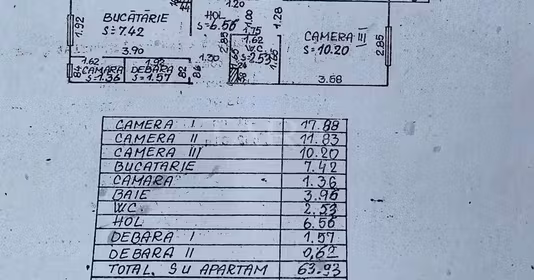 1.20
BUCĂTĂRIE
S=7.42
HOL
S=6.56
1.00
1.28
CAMERA III
S=10.20
1.92
2.85
2.85
1.75
1.62
W.C
S=2.53
1.65
3.90
1.62
1.92
1.30
3.58
84
CĂMARĂ
S=1.36
DEBARA
S=1.57
82
86
CAMERA I 17.88
CAMERA II 11.83
CAMERA III 10.20
BUCĂTĂRIE 7.42
CĂMARĂ 1.36
BAIE 3.96
W.C. 2.53
HOL 6.56
DEBARA I 1.57
DEBARA II 0,62
TOTAL SU APARTAM 63.93